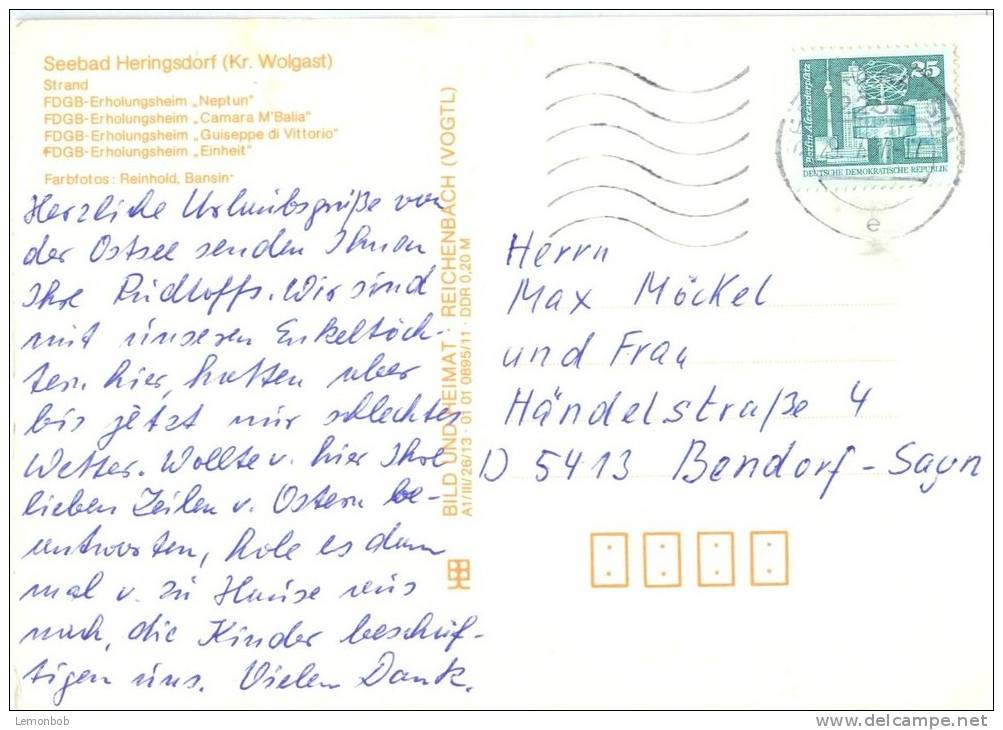 Seebad Heringsdorf (Kr. Wolgast)
Strand
FDGB-Erholungsheim „Neptun"
FDGB-Erholungsheim „Camara M'Balia"
FDGB-Erholungsheim „Guiseppe di Vittorio"
FDGB-Erholungsheim „Einheit"
Farbfotos: Reinhold, Bansin
Herzliche Urlaubsgrüße von
der Ostsee senden Ihnen
Ihre Rudloffs. Wir sind
mit unseren Enkeltöch-
tern hier, hatten aber
bis jetzt nur schlechtes
Wetter. Wollte v. hier Ihre
lieben Zeilen v. Ostern be-
antworten, hole es dann
mal v. zu Hause aus
nach, die Kinder beschäf-
tigen uns. Vielen Dank.
BILD UND HEIMAT · REICHENBACH (VOGTL)
A1/III/26/13 · 01 01 0895/11 · DDR 0,20 M
25
Berlin Alexanderplatz
DEUTSCHE DEMOKRATISCHE REPUBLIK
e
Herrn
Max Möckel
und Frau
Händelstraße 4
D 5413 Bendorf-Sayn
Lemonbob
www.delcampe.net